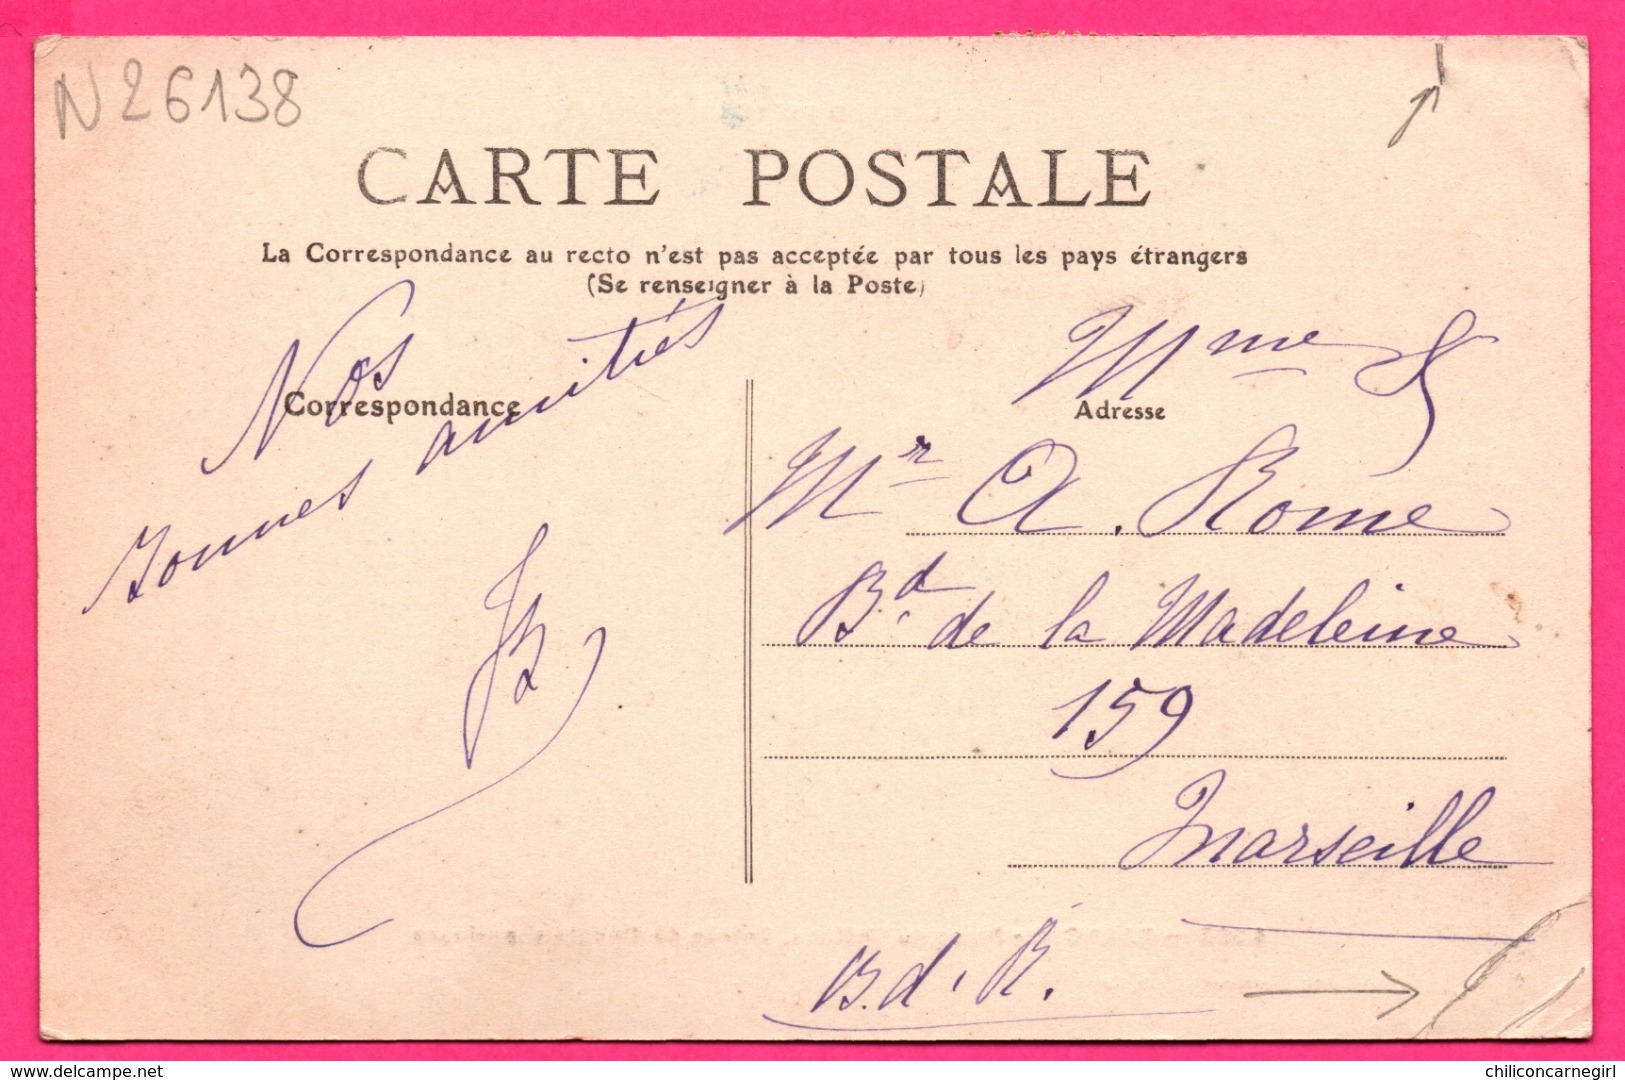 N 26138
CARTE POSTALE
La Correspondance au recto n'est pas acceptée par tous les pays étrangers
(Se renseigner à la Poste)
Correspondance
Nos
bonnes amitiés
JB
Adresse
Mme &
Mr A. Rome
Bd de la Madeleine
159
Marseille
B. d. R.
delcampe.net
chiliconcarnegirl